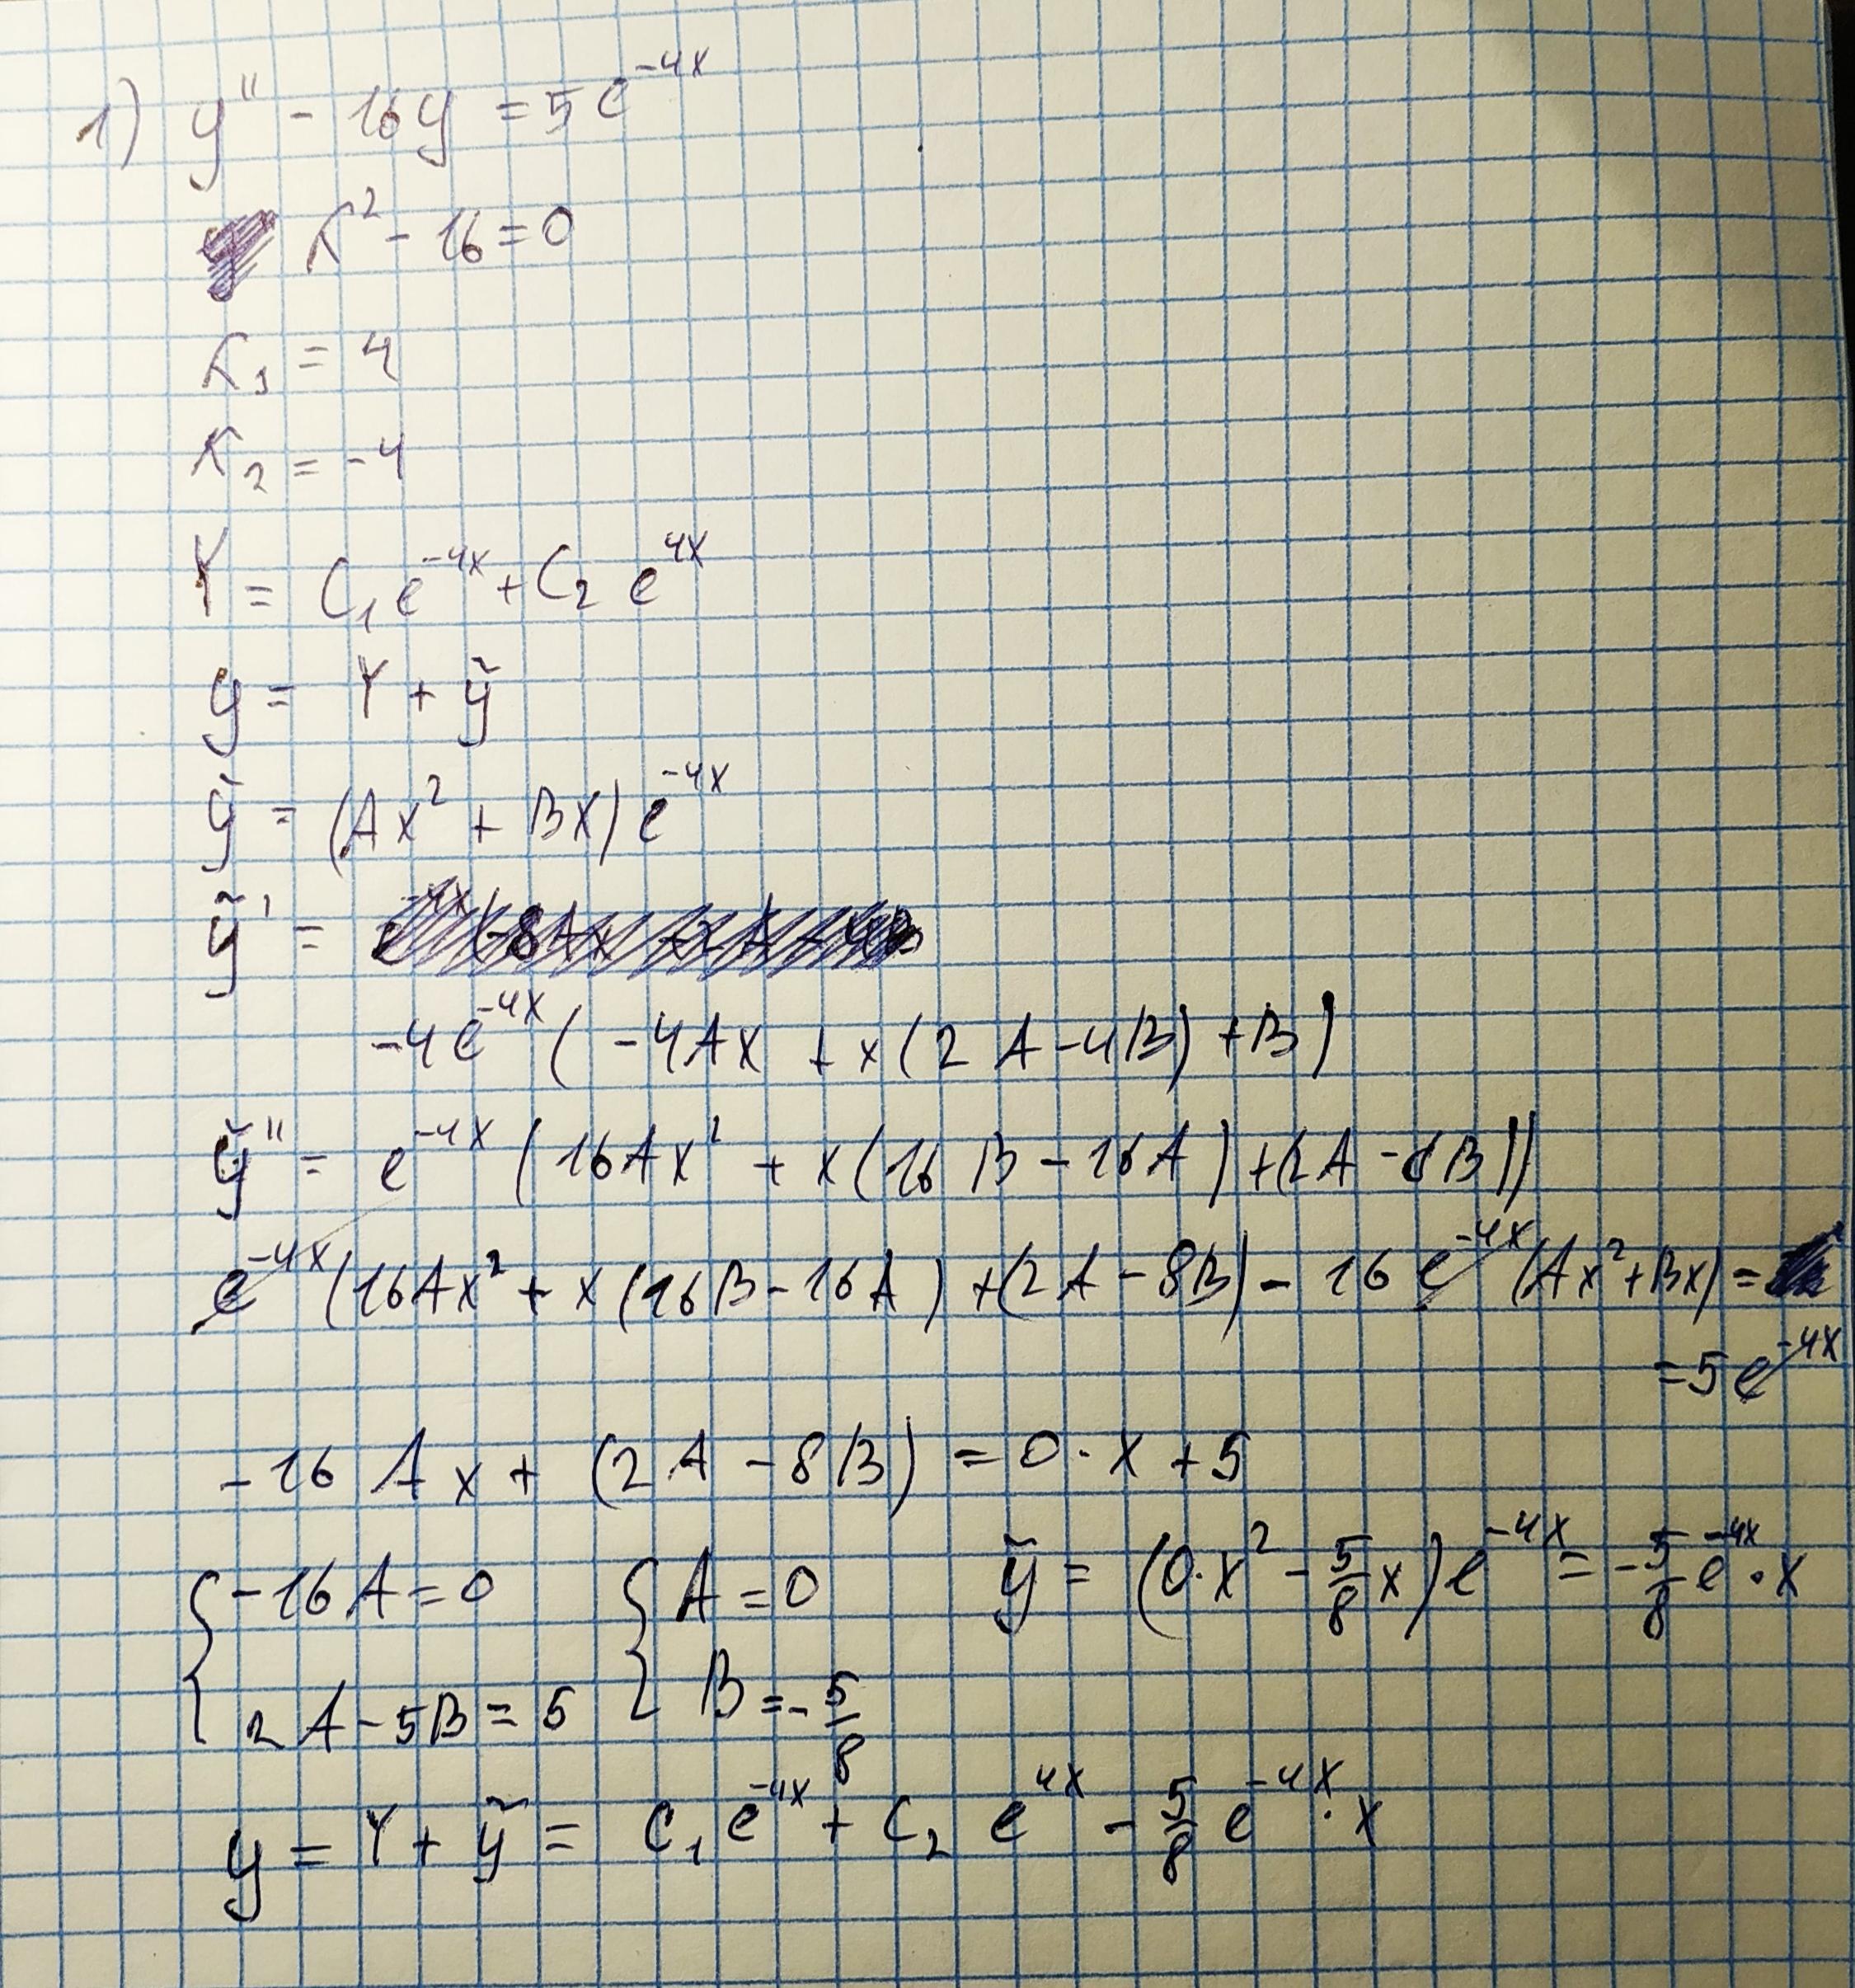 1) y'' - 16y = 5e^{-4x}
λ² - 16 = 0
λ₁ = 4
λ₂ = -4
Y = C₁e^{-4x} + C₂ e^{4x}
y = Y + ỹ
ỹ = (Ax² + Bx)e^{-4x}
ỹ' =
-4e^{-4x}(-4Ax + x(2A-4B)+B)
ỹ'' = e^{-4x}(16Ax² + x(16B-16A)+(2A-8B))
e^{-4x}(16Ax² + x(16B-16A)+(2A-8B) - 16e^{-4x}(Ax²+Bx) =
= 5e^{-4x}
-16Ax + (2A - 8B) = 0·x + 5
{-16A = 0 {A = 0 ỹ = (0·x² - 5/8 x)e^{-4x} = -5/8 e^{-4x}·x
2A - 5B = 5 B = -5/8
y = Y + ỹ = C₁e^{-4x} + C₂ e^{4x} - 5/8 e^{-4x}·x